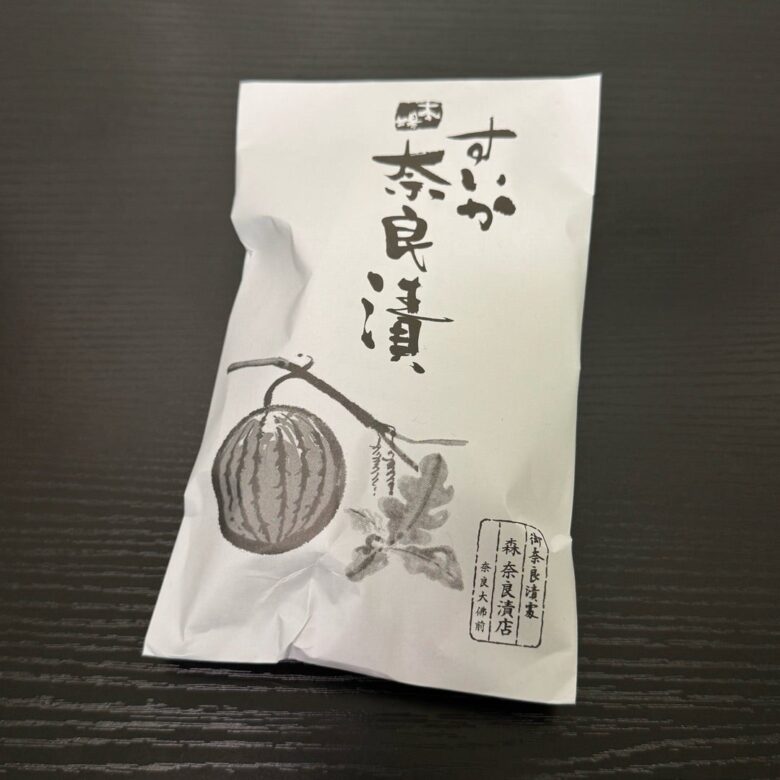 すいか
本場
奈良漬
御奈良漬家
森 奈良漬店
奈良大佛前